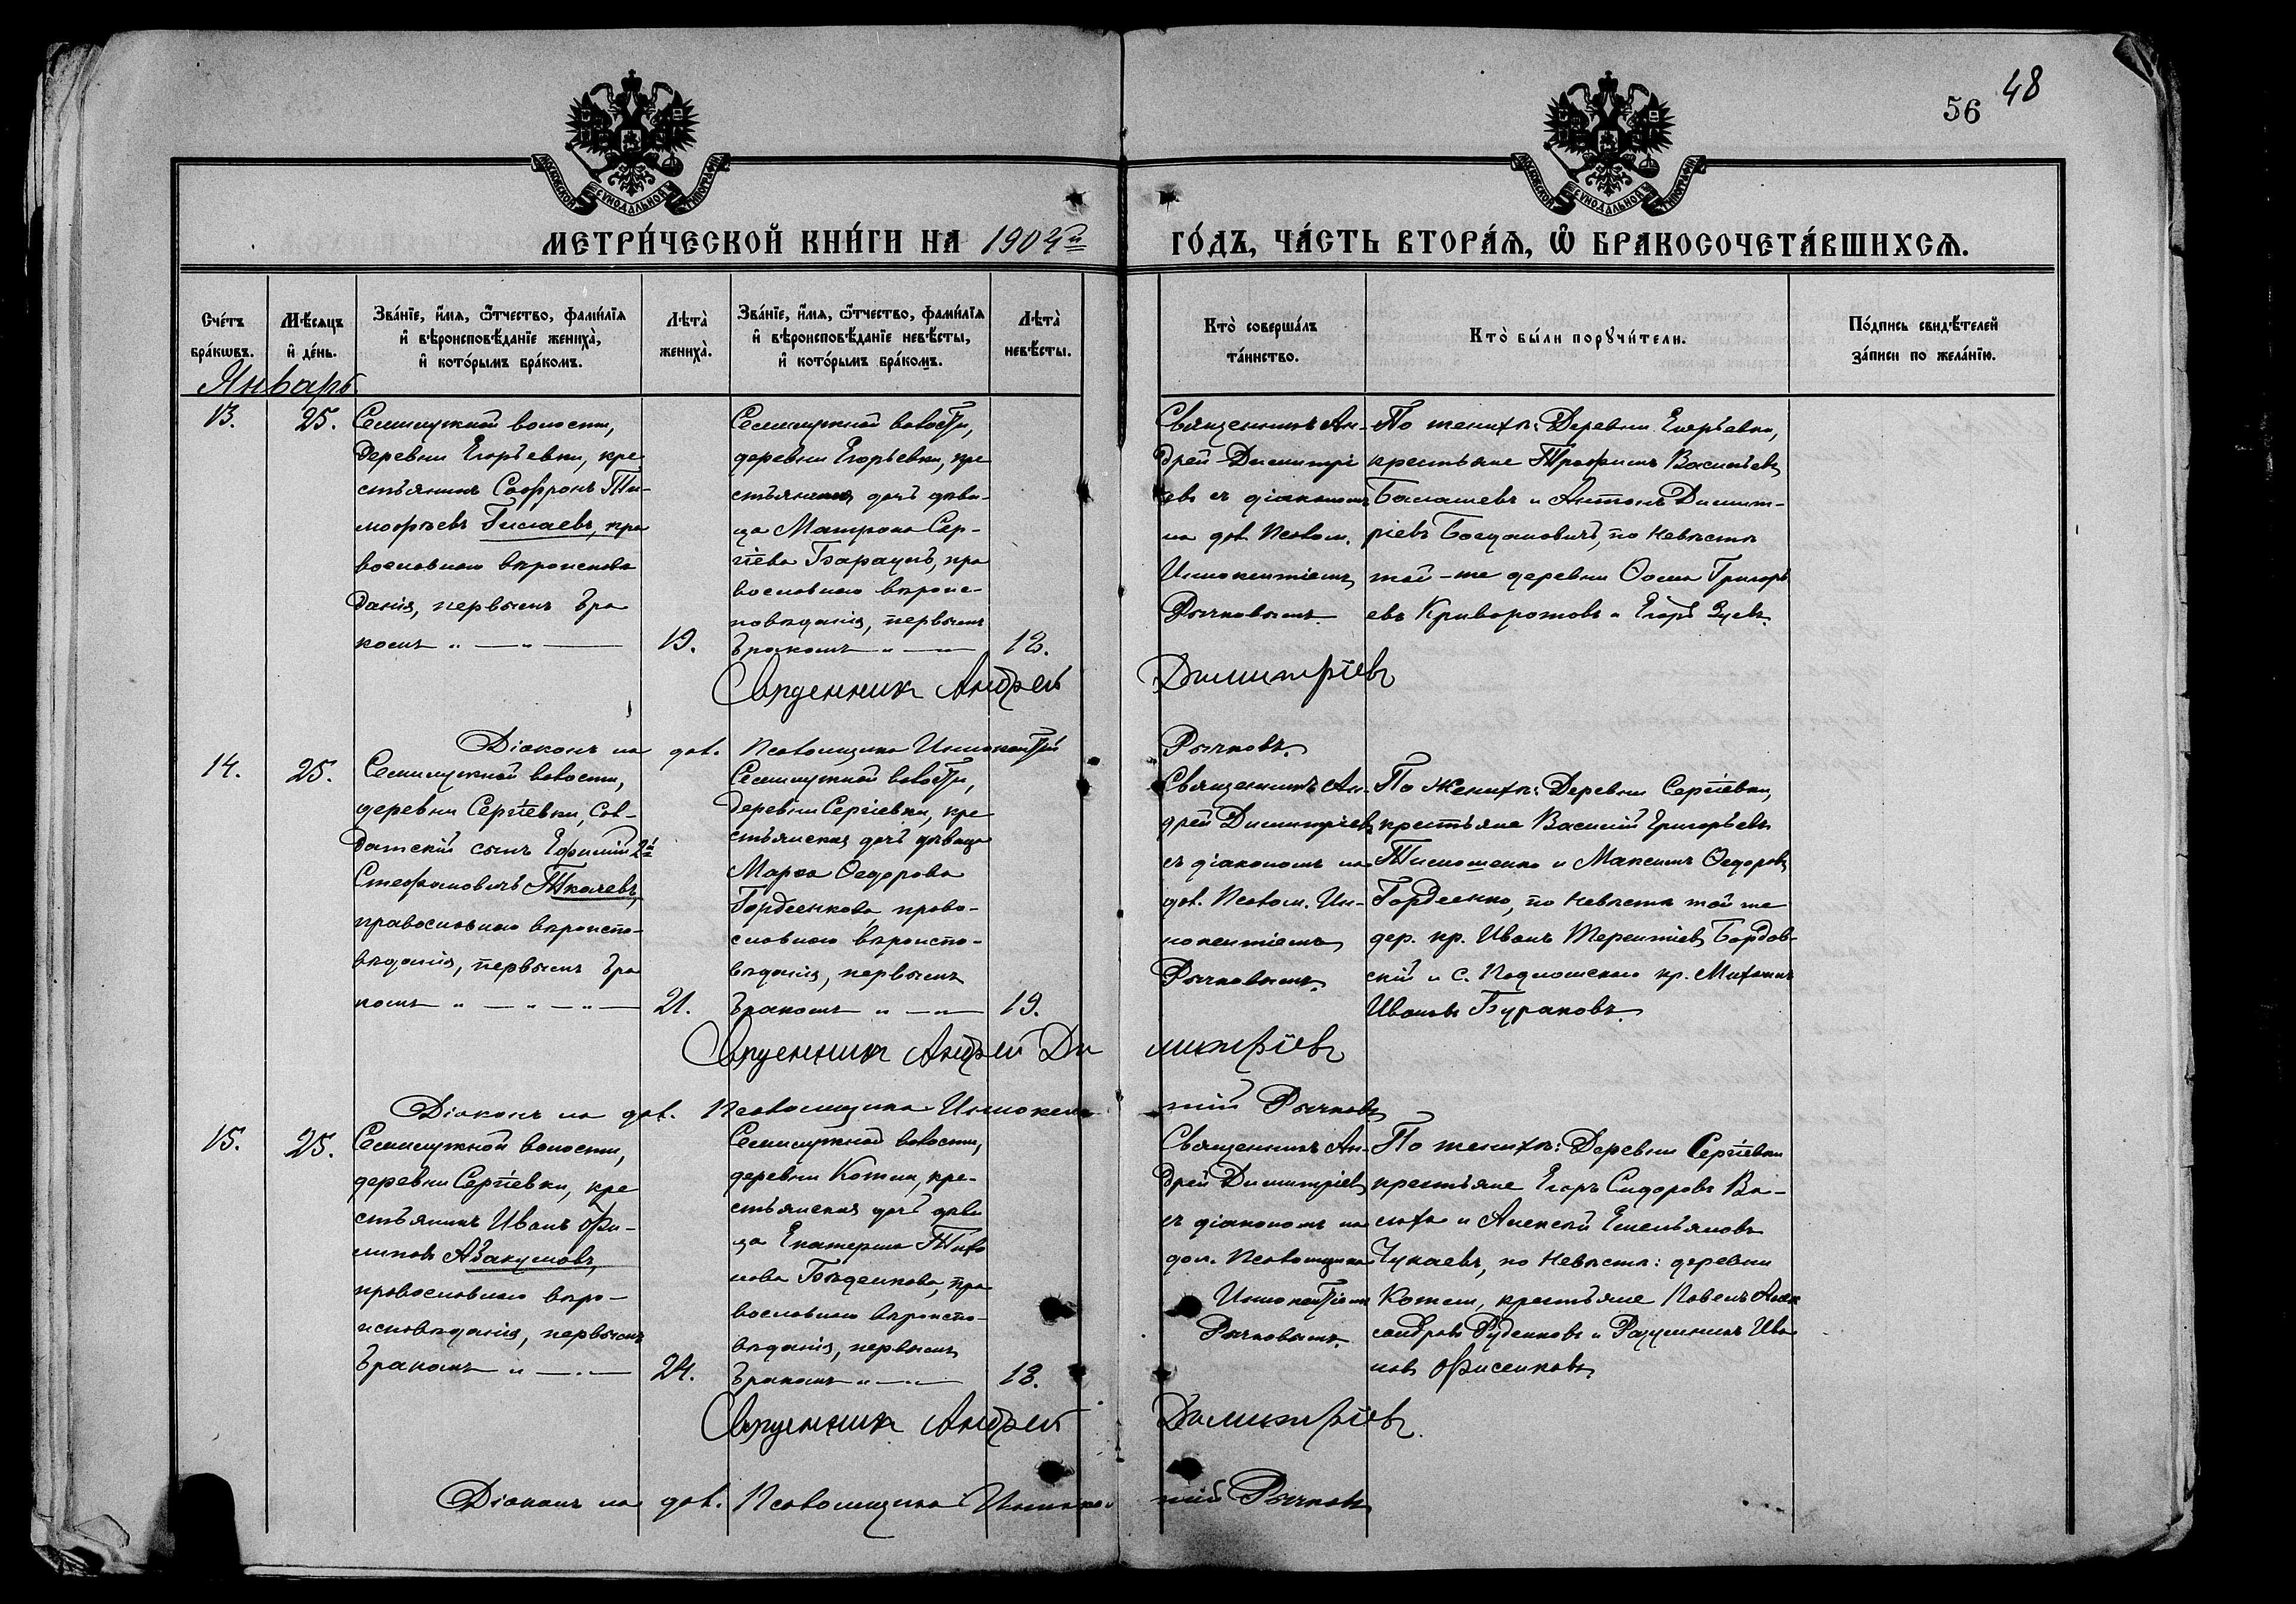 48
56
МОСКОВСКОЙ СѴНОДАЛЬНОЙ ТИПОГРАФІИ
МОСКОВСКОЙ СѴНОДАЛЬНОЙ ТИПОГРАФІИ
МЕТРИ́ЧЕСКОЙ КНИ́ГИ НА 1904й
ГО́ДЪ, ЧА́СТЬ ВТОРА́Ѧ, Ѽ БРАКОСОЧЕТА́ВШИХСѦ.
Сче́тъ бра́кѡвъ.
Мѣ́сяцъ и҆ де́нь.
Зва́нїе, и҆́мѧ, ѻ҆́тчество, фами́лїѧ и҆ вѣроисповѣ́данїе жениха̀, и҆ кото́рымъ бра́комъ.
Лѣта̀ жениха̀.
Зва́нїе, и҆́мѧ, ѻ҆́тчество, фами́лїѧ и҆ вѣроисповѣ́данїе невѣ́сты, и҆ кото́рымъ бра́комъ.
Лѣта̀ невѣ́сты.
Кто̀ соверша́лъ та́инство.
Кто̀ бы́ли порꙋчи́тели.
По́дпись свидѣ́телей за́писи по жела́нїю.
Январь.
13.
25.
Семилужной волости,
деревни Егорьевки, кре
стьянинъ Софронъ Ти-
мофѣевъ Гилаевъ, пра
вославнаго вѣроисповѣ
данія, первымъ бра
комъ
19.
Семилужной волости,
деревни Егорьевки, кре
стьянская дочь дѣви-
ца Матрона Сер-
гіева Барацъ, пра
вославнаго вѣроис-
повѣданія, первымъ
бракомъ
18.
Священникъ Ан-
дрей Димитрі
евъ съ діакономъ
на дол. Псалом.
Иннокентіемъ
Рычковымъ.
По женихѣ: Деревни Егорьевки,
крестьяне Трофимъ Васильевъ
Балашевъ и Антонъ Димит-
ріевъ Богдановичъ, по невѣстѣ
той-же деревни Ѳома Григорь
евъ Криворотовъ и Егоръ Зуевъ.
Священникъ Андрей Димитріевъ
Діаконъ на дол. Псаломщика Иннокентій Рычковъ.
14.
25.
Семилужной волости,
деревни Сергіевки, Сол-
датскій сынъ Ефимій 2й
Стефановичъ Ткачевъ,
православнаго вѣроиспо-
вѣданія, первымъ бра
комъ
21.
Семилужной волости,
деревни Сергіевки, кре
стьянская дочь дѣвица
Марѳа Ѳедорова
Гордеенкова, право-
славнаго вѣроиспо-
вѣданія, первымъ
бракомъ
19.
Священникъ Ан-
дрей Димитріевъ
съ діакономъ на
дол. Псалом. Ин-
нокентіемъ
Рычковымъ.
По женихѣ: Деревни Сергіевки,
крестьяне Василій Григорьевъ
Тимошенко и Максимъ Ѳедоровъ
Гордеенко, по невѣстѣ той же
дер. кр. Иванъ Терентіевъ Бордов-
скій и с. Подломскаго кр. Михаилъ
Ивановъ Бураковъ.
Священникъ Андрей Димитріевъ
Діаконъ на дол. Псаломщика Иннокентій Рычковъ
15.
25.
Семилужной волости,
деревни Сергіевки, кре
стьянинъ Иванъ Фи-
липовъ Абакумовъ,
православнаго вѣро-
исповѣданія, первымъ
бракомъ
24.
Семилужной волости,
деревни Котки, кре-
стьянская дочь дѣви
ца Екатерина
нова православнаго вѣроиспо-
вѣданія, первымъ
бракомъ
18.
Священникъ Ан-
дрей Димитріевъ
съ діакономъ на
дол. Псаломщика
Иннокентіемъ
Рычковымъ.
По женихѣ: Деревни Сергіевки
крестьяне Егоръ Сидоровъ Ва-
люхо и Алексѣй Емельяновъ
Чукаевъ, по невѣстѣ: деревни
Котки, крестьяне Павелъ Алек
сандровъ Руденковъ и Разумникъ Ива
новъ Фисенковъ
Священникъ Андрей Димитріевъ.
Діаконъ на дол. Псаломщика Иннокентій Рычковъ